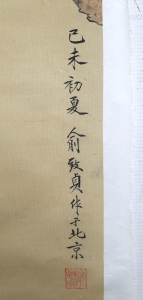 己未初夏俞致貞作于北京